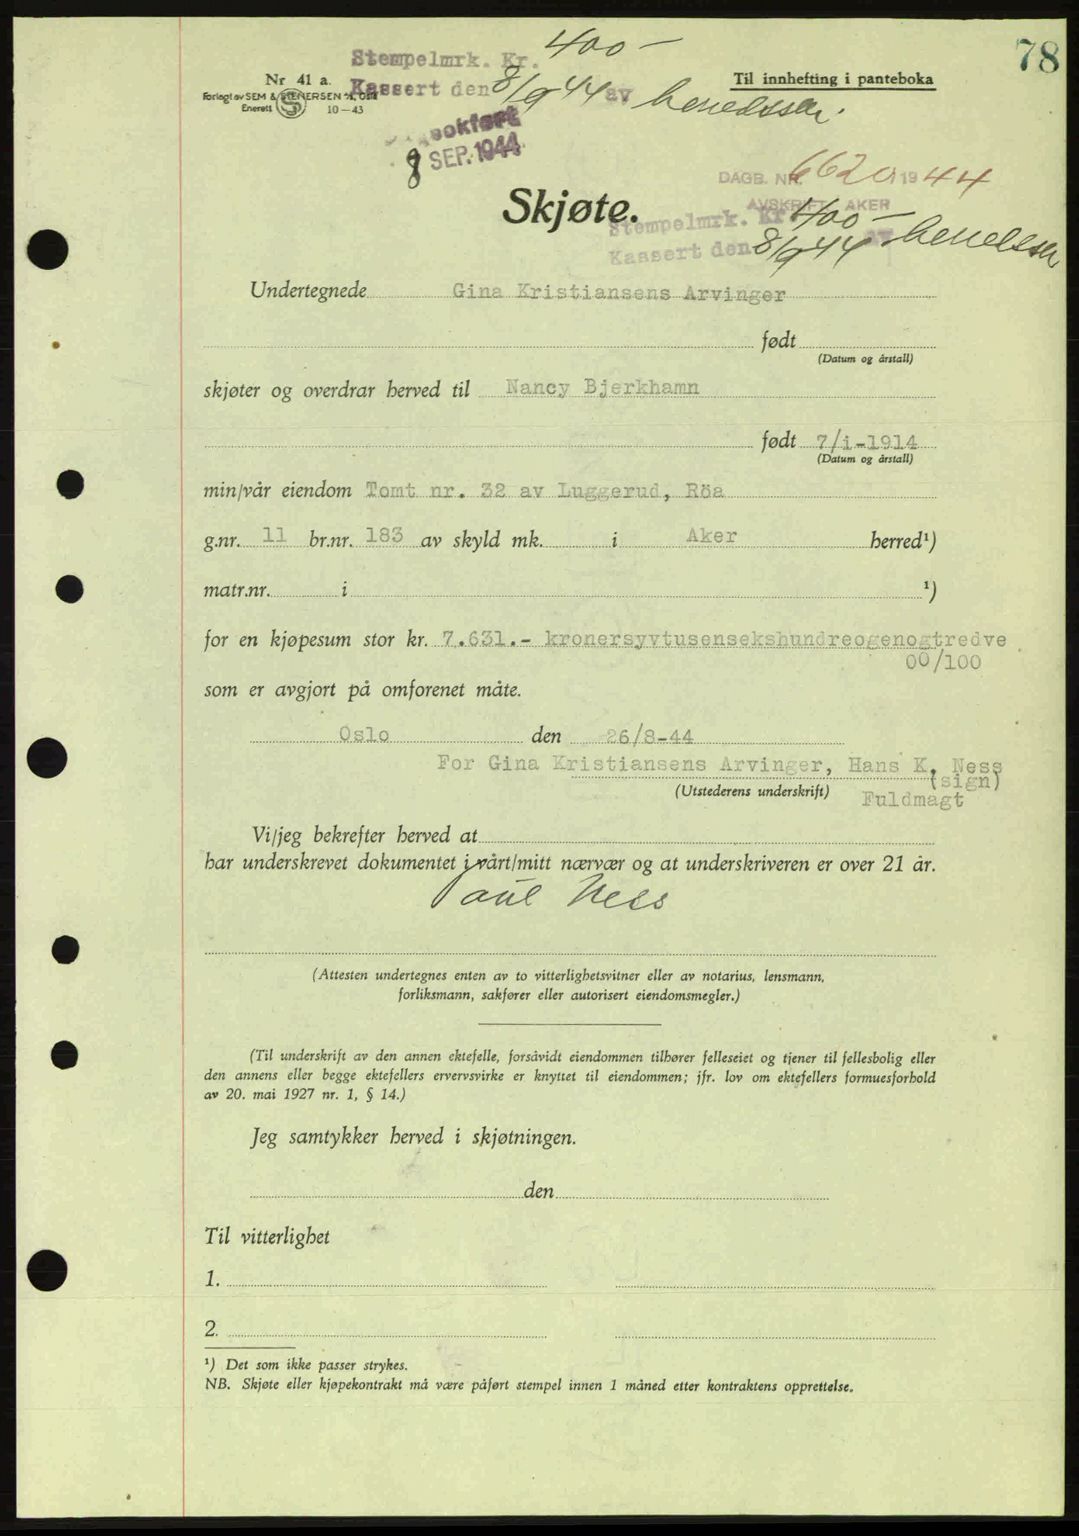 78
Stempelmrk. Kr. 400-
Nr 41 a.
Til innhefting i panteboka
Kassert den 8/9 44 av
Forlagt av SEM & STENERSEN A/S, OSLO
Enerett 10-43
8 SEP. 1944
DAGB. NR. 6620 1944
AVSKRIFT AKER
Skjøte.
Stempelmrk. Kr. 400-
Kassert den 8/9 44 av
Undertegnede Gina Kristiansens Arvinger
født
(Datum og årstall)
skjøter og overdrar herved til Nancy Bjerkhamn
født 7/i-1914
(Datum og årstall)
min/vår eiendom Tomt nr. 32 av Luggerud, Röa
g.nr. 11 br.nr. 183 av skyld mk. i Aker herred¹)
matr.nr. i ¹)
for en kjøpesum stor kr. 7.631.- kronersyvtusensekshundreogenogtredve
00/100
som er avgjort på omforenet måte.
Oslo den 26/8-44
For Gina Kristiansens Arvinger, Hans K. Ness
(sign)
(Utstederens underskrift) Fuldmagt
Vi/jeg bekrefter herved at
har underskrevet dokumentet i vårt/mitt nærvær og at underskriveren er over 21 år.
Paul Ness
(Attesten undertegnes enten av to vitterlighetsvitner eller av notarius, lensmann,
forliksmann, sakfører eller autorisert eiendomsmegler.)
(Til underskrift av den annen ektefelle, forsåvidt eiendommen tilhører felleseiet og tjener til fellesbolig eller
den annens eller begge ektefellers ervervsvirke er knyttet til eiendommen; jfr. lov om ektefellers formuesforhold
av 20. mai 1927 nr. 1, § 14.)
Jeg samtykker herved i skjøtningen.
den
Til vitterlighet
1.
2.
¹) Det som ikke passer strykes.
NB. Skjøte eller kjøpekontrakt må være påført stempel innen 1 måned etter kontraktens opprettelse.